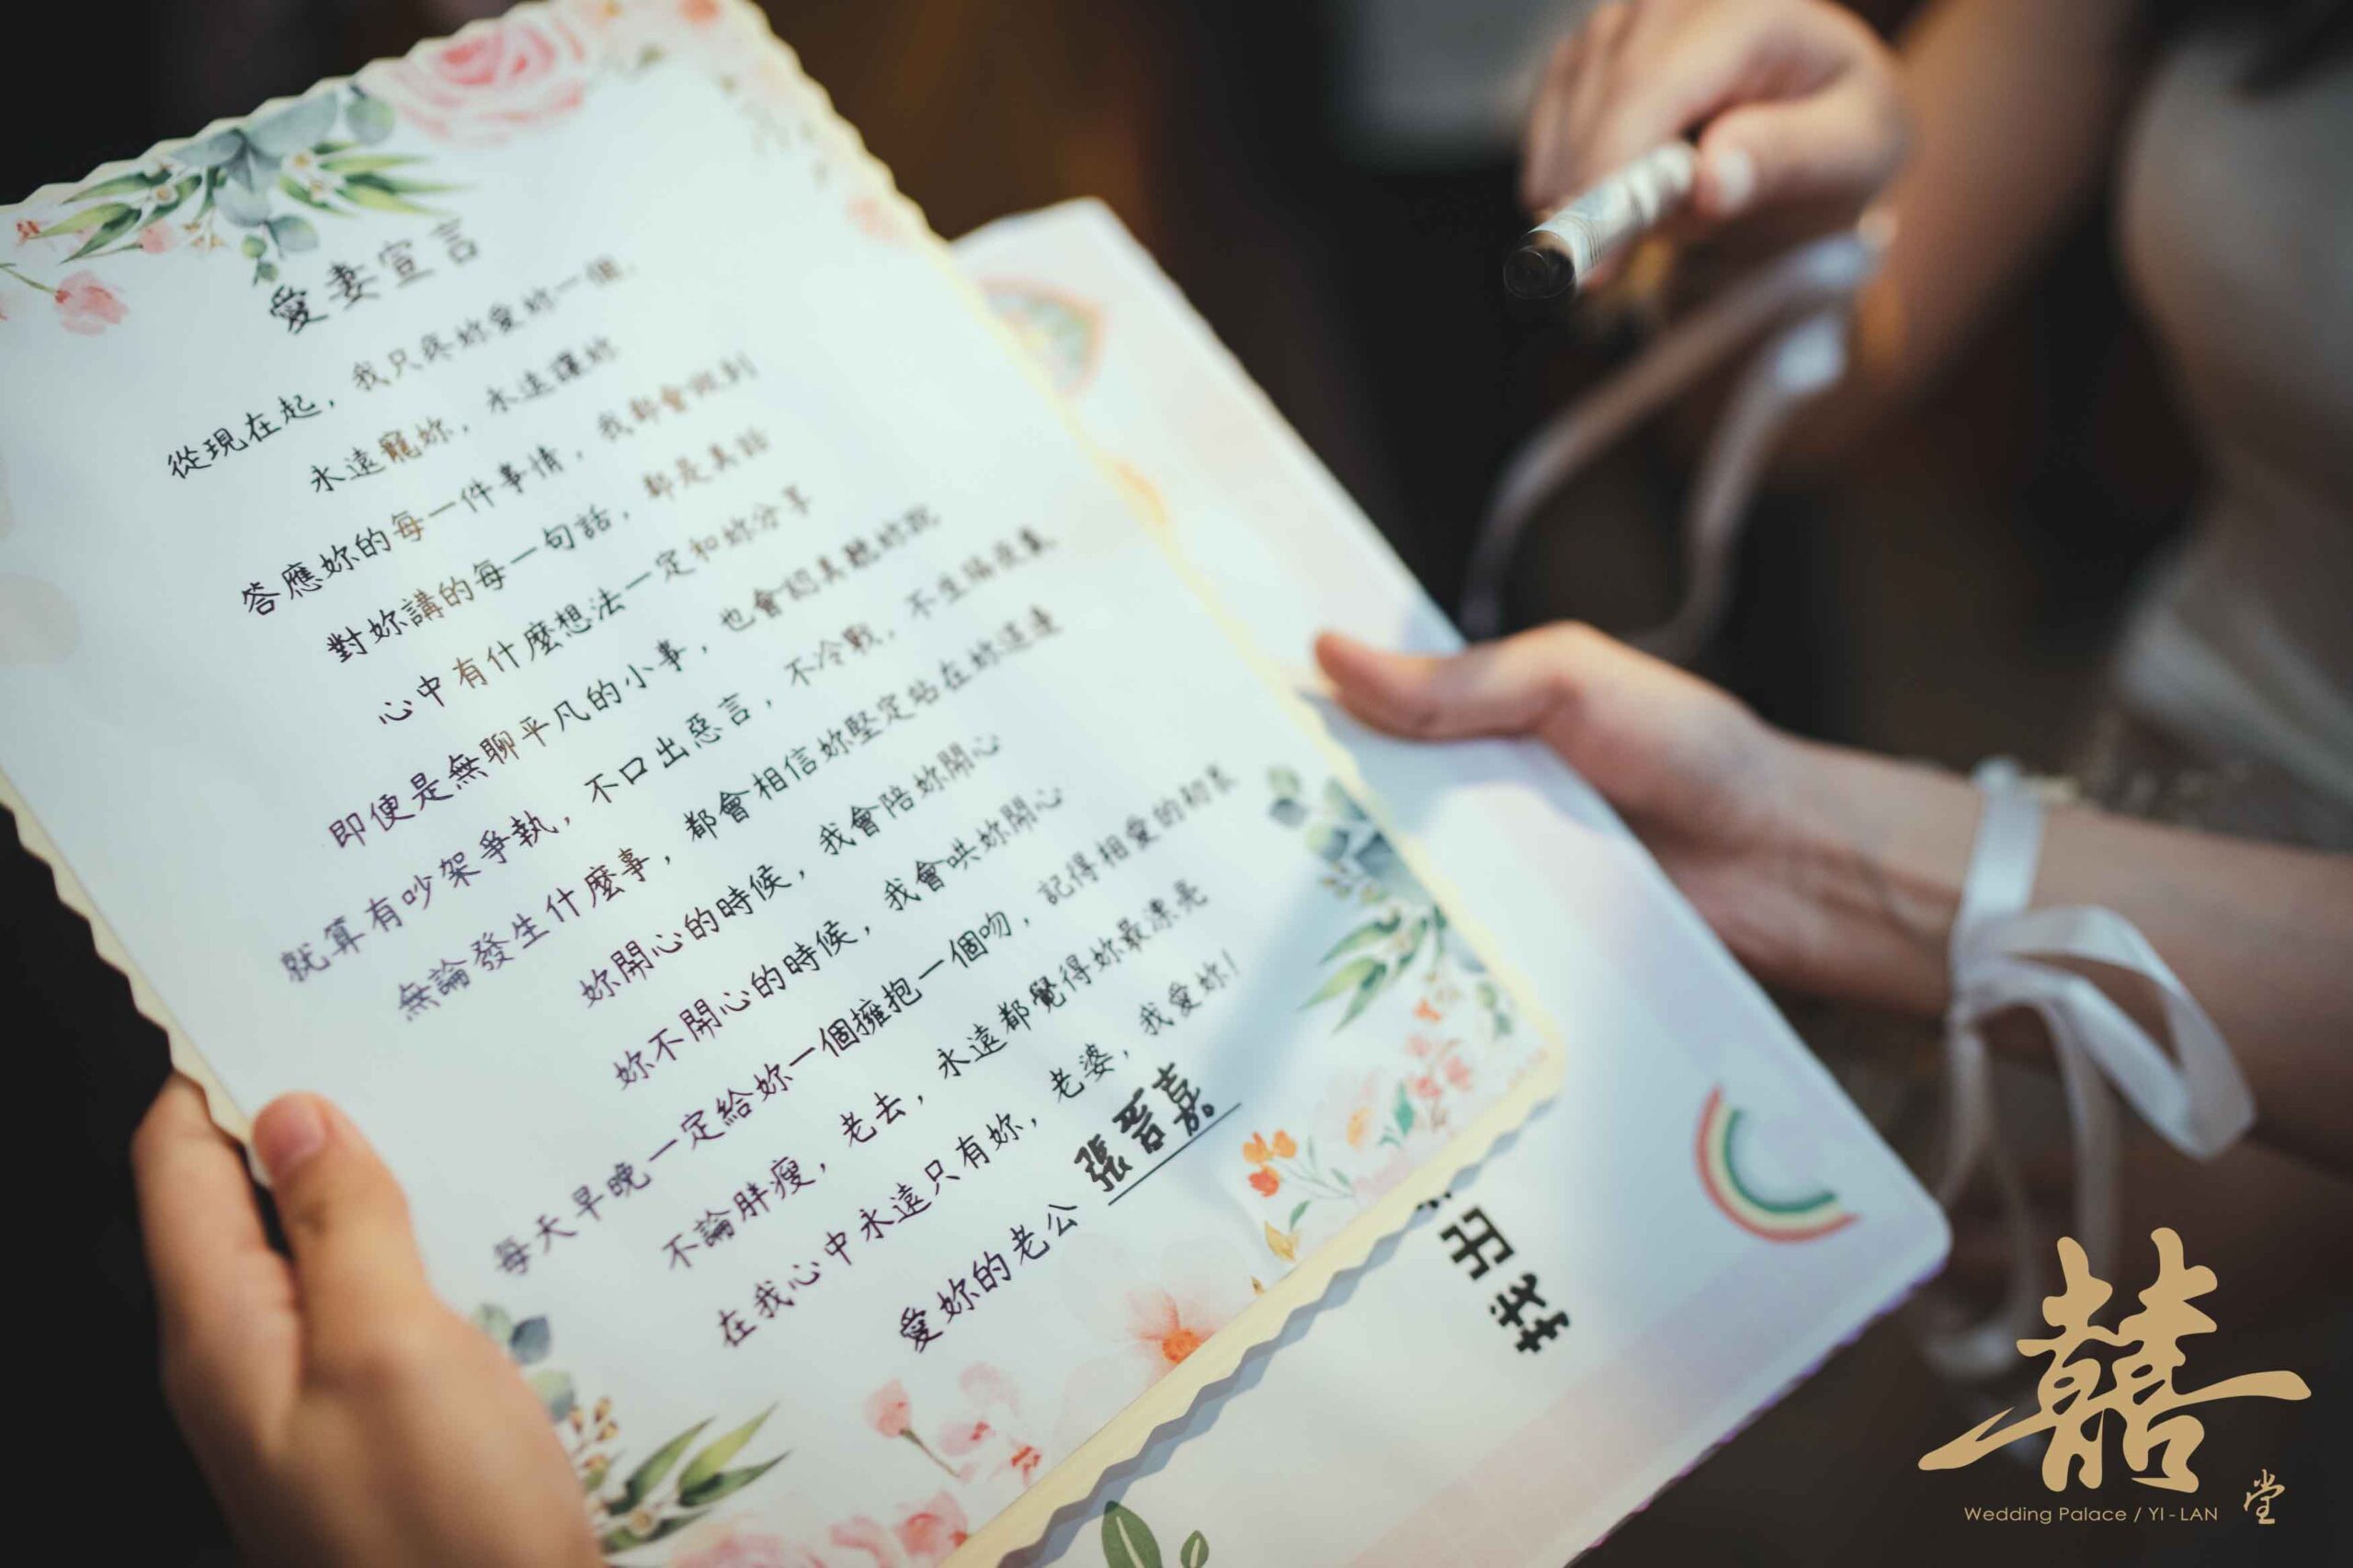 愛妻宣言
從現在起，我只疼妳愛妳一個，
永遠寵妳，永遠讓妳
答應妳的每一件事情，我都會做到
對妳講的每一句話，都是真話
心中有什麼想法一定和妳分享
即便是無聊平凡的小事，也會認真聽妳說
就算有吵架爭執，不口出惡言，不冷戰，不生隔夜氣
無論發生什麼事，都會相信妳堅定站在妳這邊
妳開心的時候，我會陪妳開心
妳不開心的時候，我會哄妳開心
每天早晚一定給妳一個擁抱一個吻，記得相愛的初衷
不論胖瘦，老去，永遠都覺得妳最漂亮
在我心中永遠只有妳，老婆，我愛妳！
愛妳的老公 張晉嘉
找出
囍
堂
Wedding Palace / YI-LAN